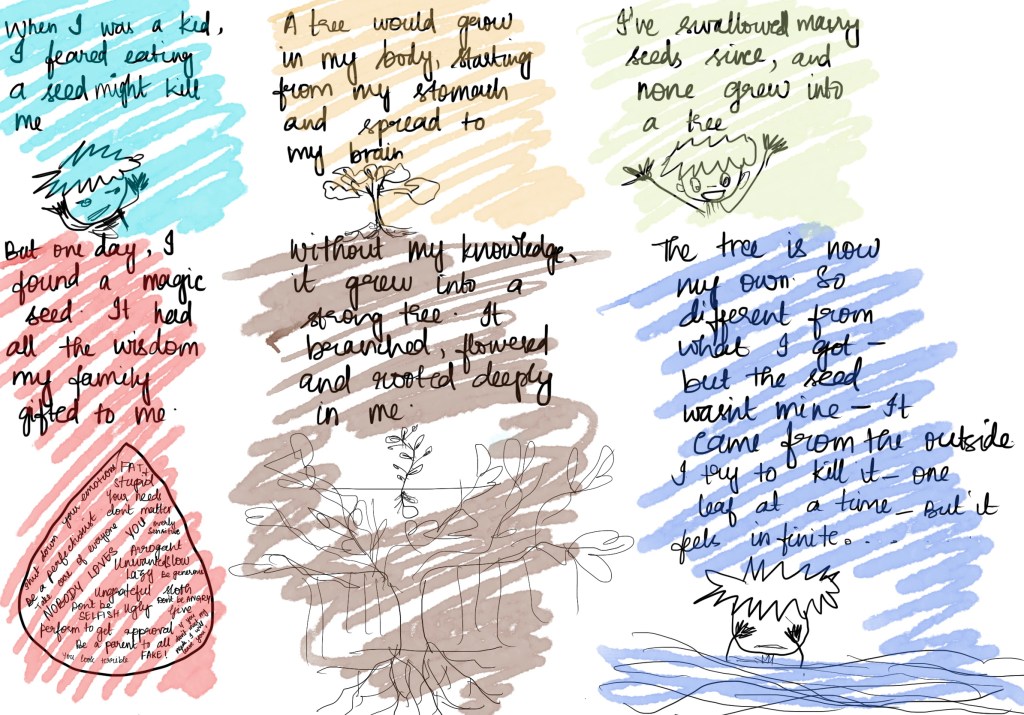 When I was a kid,
I feared eating
a seed might kill
me
A tree would grow
in my body, starting
from my stomach
and spread to
my brain
I've swallowed many
seeds since, and
none grew into
a tree
But one day, I
found a magic
seed. It had
all the wisdom
my family
gifted to me.
FAT
stupid
Your needs
dont matter
shut down your emotions
Be a perfectionist
Take care of everyone
NOBODY LOVES YOU
overly
sensitive
Arrogant
Unwanted slow
Lazy Be generous
ungrateful sloth
Dont be Ugly Dont be ANGRY
SELFISH Give
perform to get approval
Be a parent to all
You look terrible FAKE!
Without my knowledge,
it grew into a
strong tree. It
branched, flowered
and rooted deeply
in me.
The tree is now
my own. So
different from
what I got —
but the seed
wasn't mine — It
came from the outside
I try to kill it — one
leaf at a time — But it
feels infinite. . . . . .